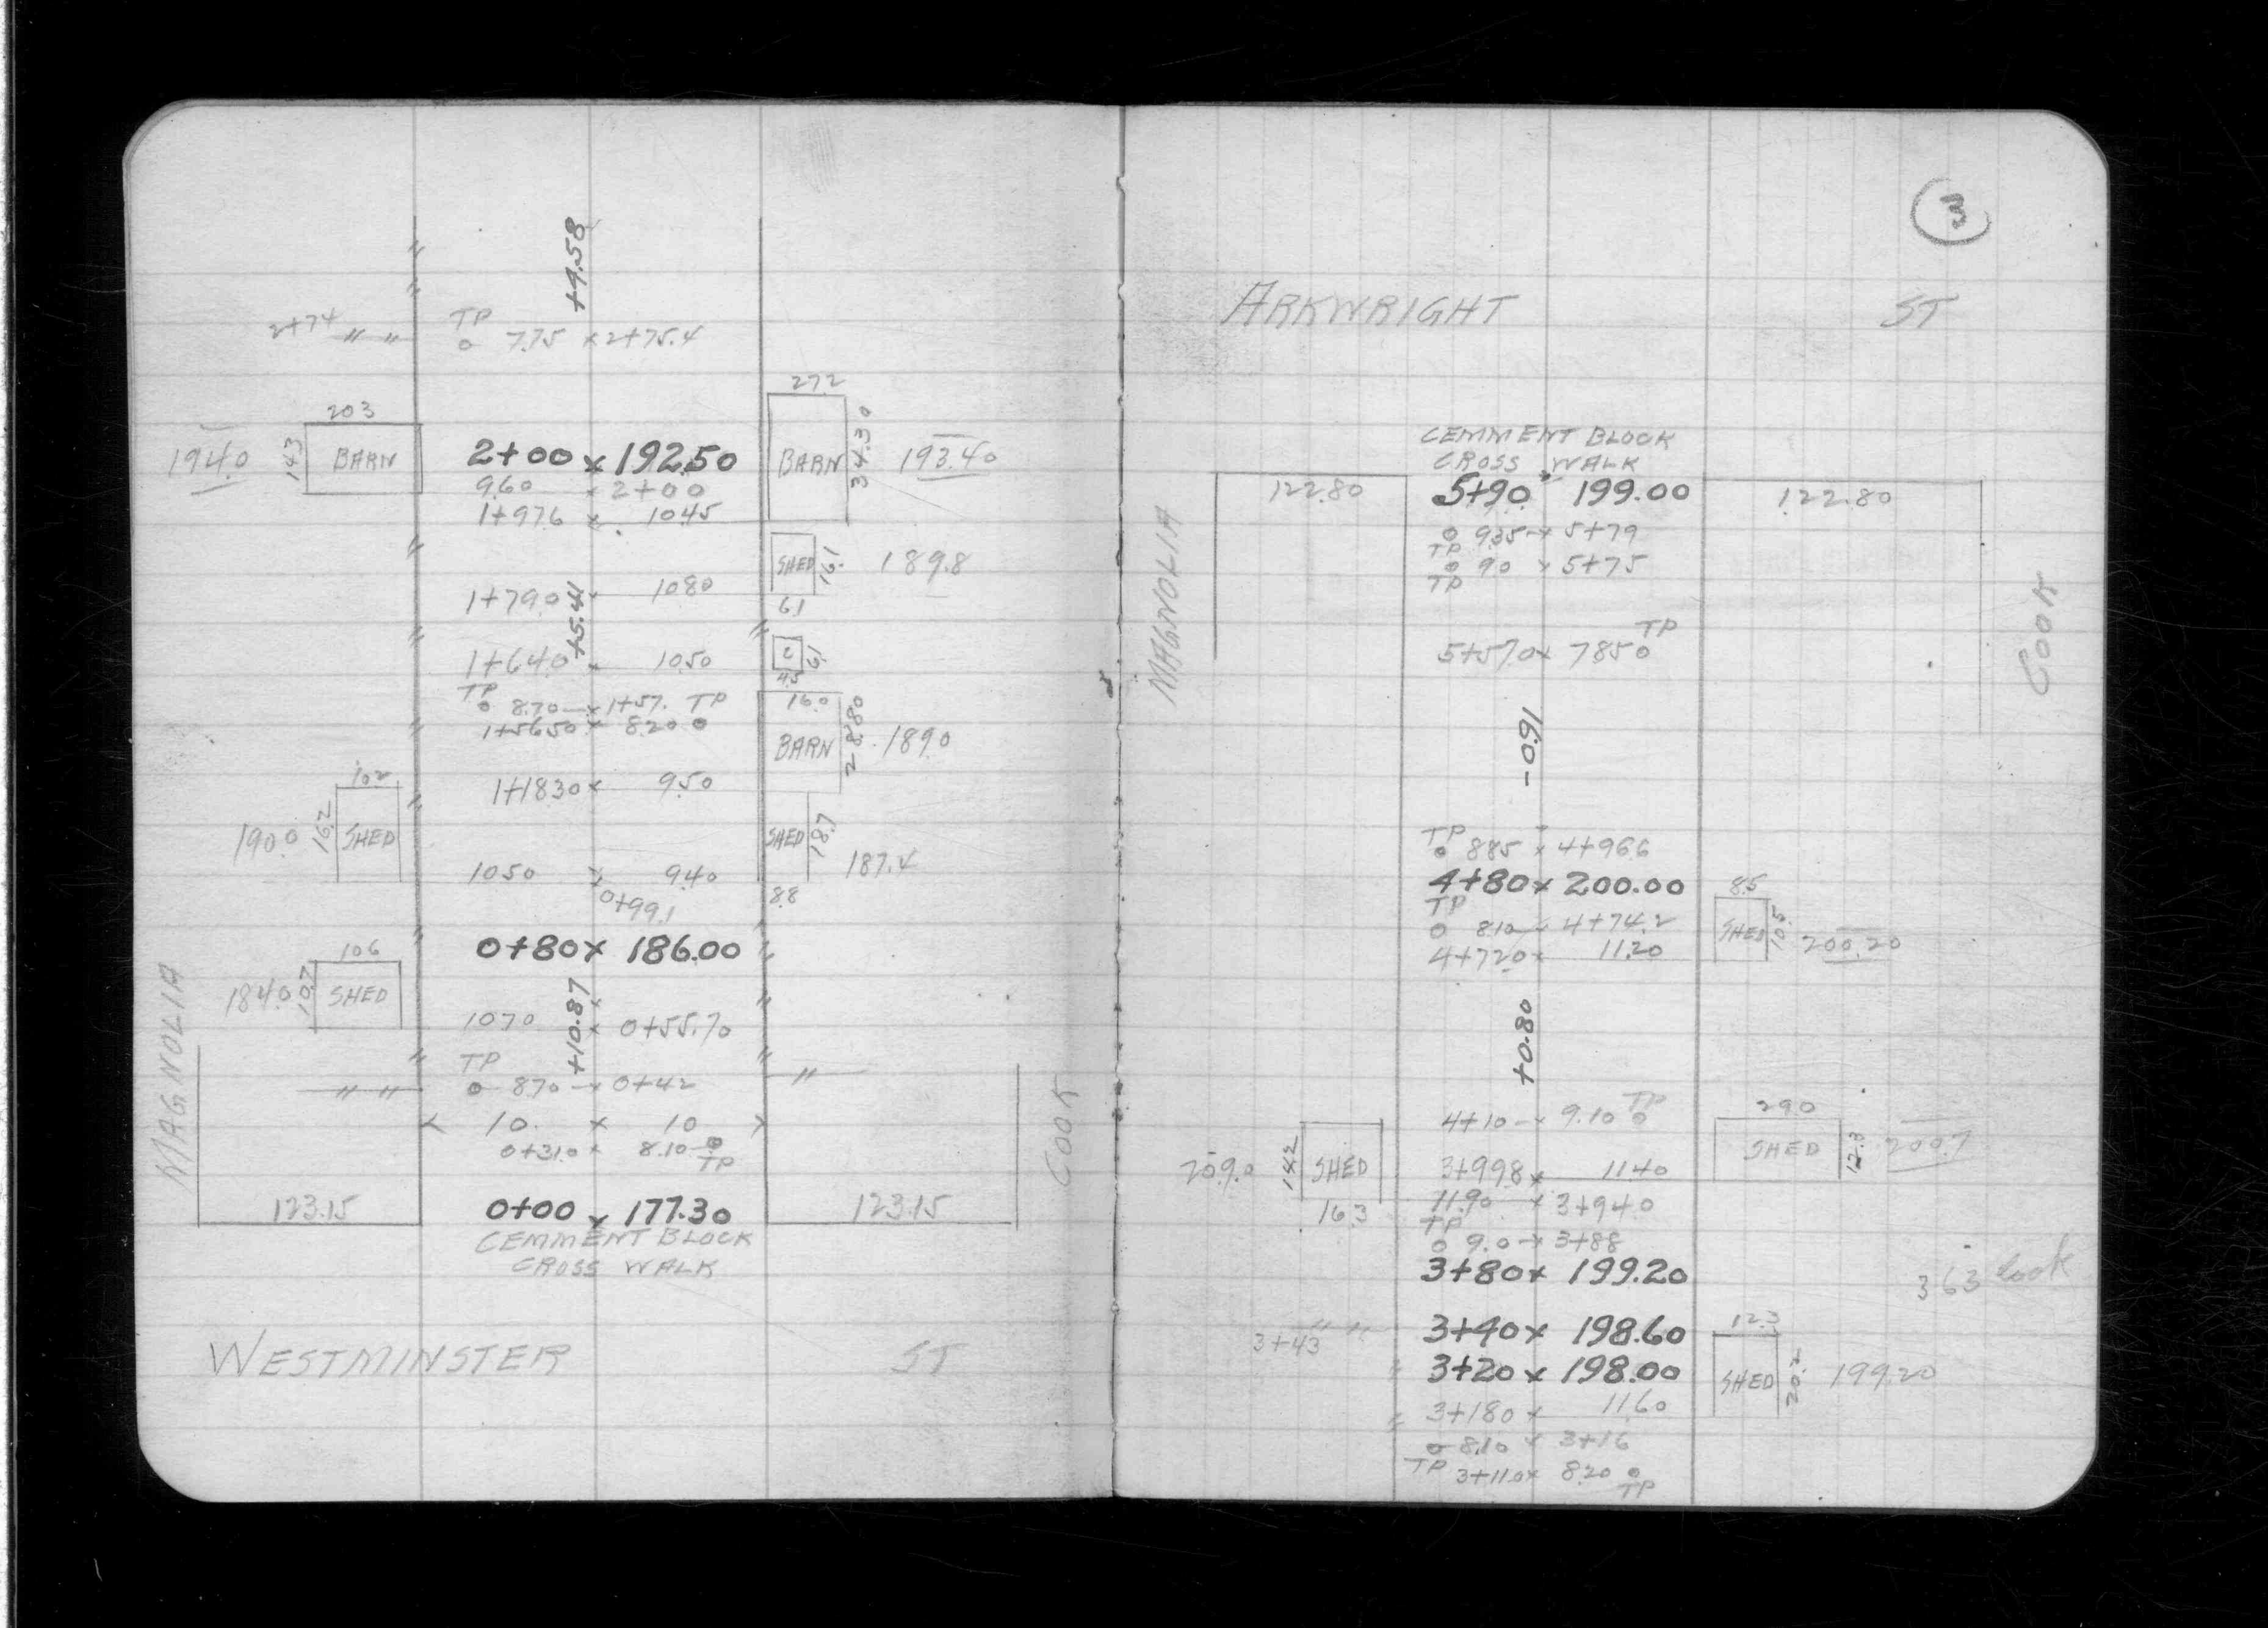 +4.58
TP
2+74 " " o 7.75 x 2+75.4
272
203
194.0 143 BARN 2+00 x 192.50 BARN 34.30 193.40
9.60 x 2+00
1+97.6 x 10.45
SHED 16.1 189.8
1+79.0 x 10.80
61
+5.41
1+64.0 x 10.50
45
TP
o 8.70 x 1+57. TP
16.0
1+56.50 x 8.20 o
BARN 28.80 189.0
102
1+18.30 x 9.50
190.0 16.2 SHED
SHED 18.7 187.4
10.50 x 9.40
0+99.1
8.8
0+80 x 186.00
106
184.0 10.7 SHED
+10.87
10.70 x 0+55.70
TP
" " o 8.70 x 0+42 "
10. x 10
0+31.0 x 8.10 o TP
MAGNOLIA
COOK
123.15 0+00 x 177.30 123.15
CEMMENT BLOCK
CROSS WALK
WESTMINSTER ST
3
ARKWRIGHT ST
CEMMENT BLOCK
CROSS WALK
122.80 5+90 199.00 122.80
o 9.35 x 5+79
TP
o 90 x 5+75
TP
MAGNOLIA
COOK
TP
5+57.0 x 7.85 o
-0.91
TP
o 8.85 x 4+96.6
4+80 x 200.00
8.5
TP
o 8.10 x 4+74.2
SHED 10.5 200.20
4+72.0 x 11.20
+0.80
4+10 x 9.10 o TP
29.0
SHED 12.3 200.7
209.0 14.2 SHED 3+99.8 x 11.40
16.3 11.90 x 3+94.0
TP
o 9.0 x 3+88
3+80 x 199.20
363 look
3+43 " " 3+40 x 198.60
12.3
3+20 x 198.00
SHED 20.2 199.20
" 3+18.0 x 11.60
o 8.10 x 3+16
TP 3+11.0 x 8.20 o
TP